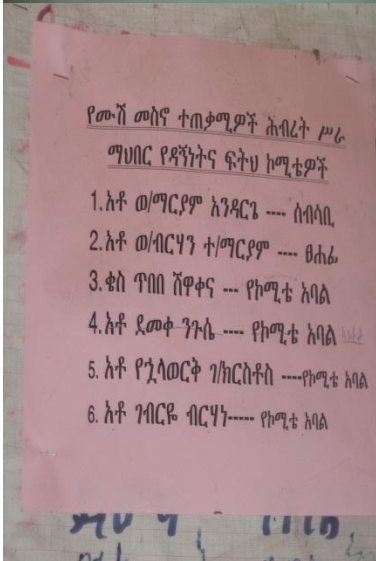 የሙሽ መስኖ ተጠቃሚዎች ሕብረት ሥራ
ማህበር የዳኝነትና ፍትህ ኮሚቴዎች
1. አቶ ወ/ማርያም አንዳርጌ ---- ሰብሳቢ
2. አቶ ወ/ብርሃን ተ/ማርያም ---- ፀሐፊ
3. ቄስ ጥበበ ሸዋቀና --- የኮሚቴ አባል
4. አቶ ደመቀ ንጉሴ ---- የኮሚቴ አባል
5. አቶ የኋላወርቅ ገ/ክርስቶስ ----የኮሚቴ አባል
6. አቶ ገብርዬ ብርሃነ----- የኮሚቴ አባል